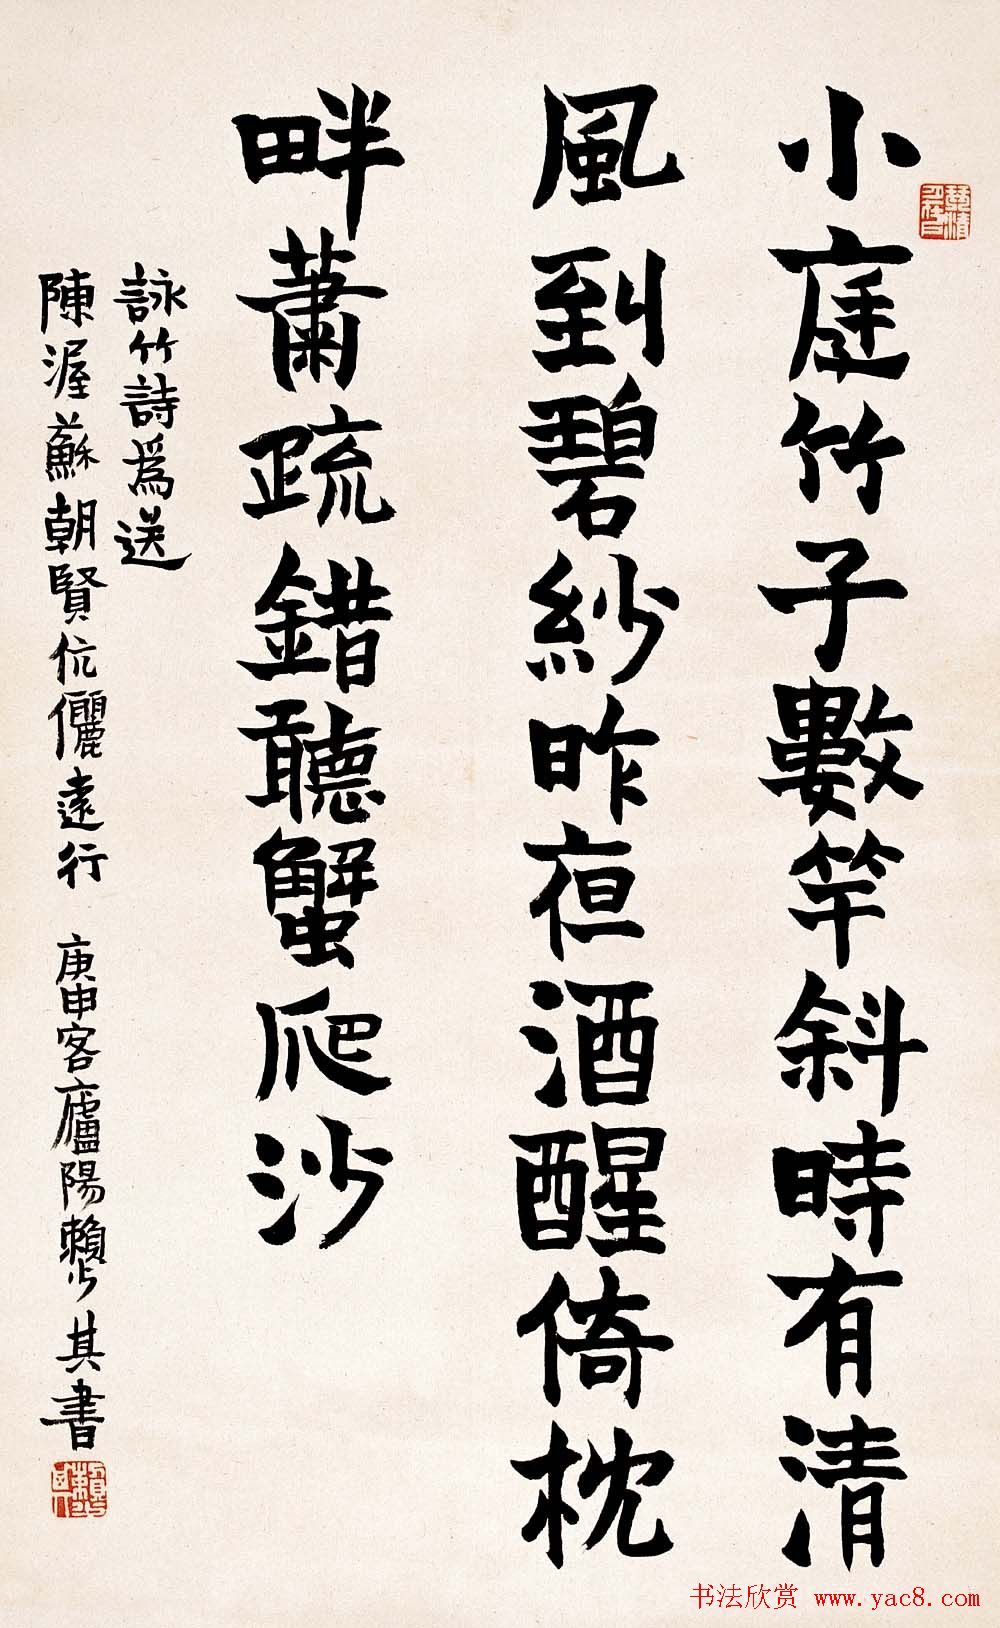 小庭竹子數竿斜時有清
風到碧紗昨夜酒醒倚枕
畔蕭疏錯聽蟹爬沙
詠竹詩爲送
陳渥蘇朝賢伉儷遠行 庚申客廬陽賴少其書
书法欣赏 www.yac8.com